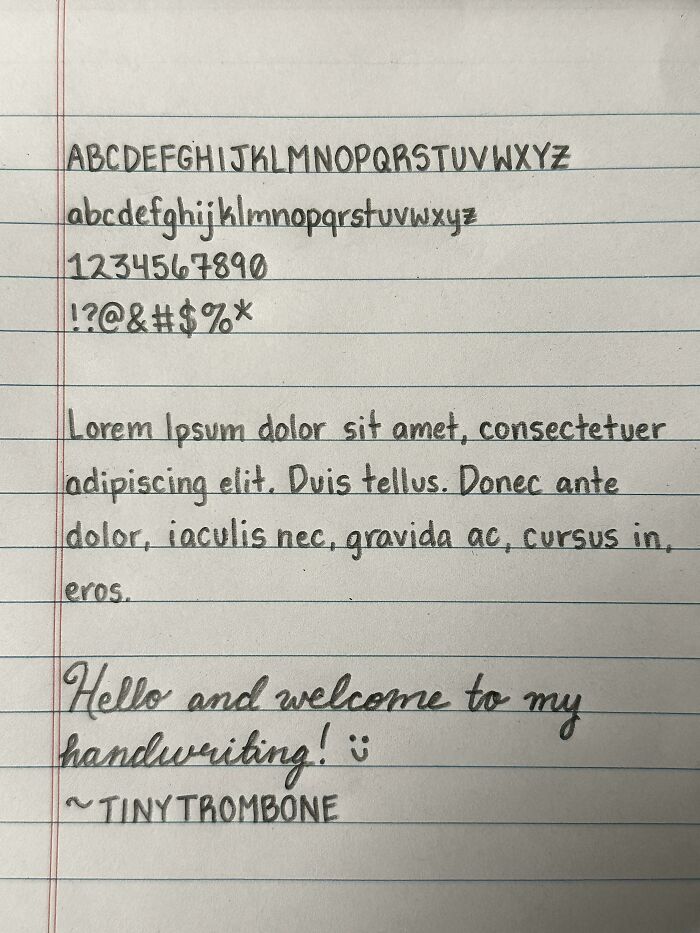 ABCDEFGHIJKLMNOPQRSTUVWXYZ
abcdefghijklmnopqrstuvwxyz
1234567890
!?@&#$%*
Lorem Ipsum dolor sit amet, consectetuer
adipiscing elit. Duis tellus. Donec ante
dolor, iaculis nec, gravida ac, cursus in,
eros.
Hello and welcome to my
handwriting! :)
~TINYTROMBONE